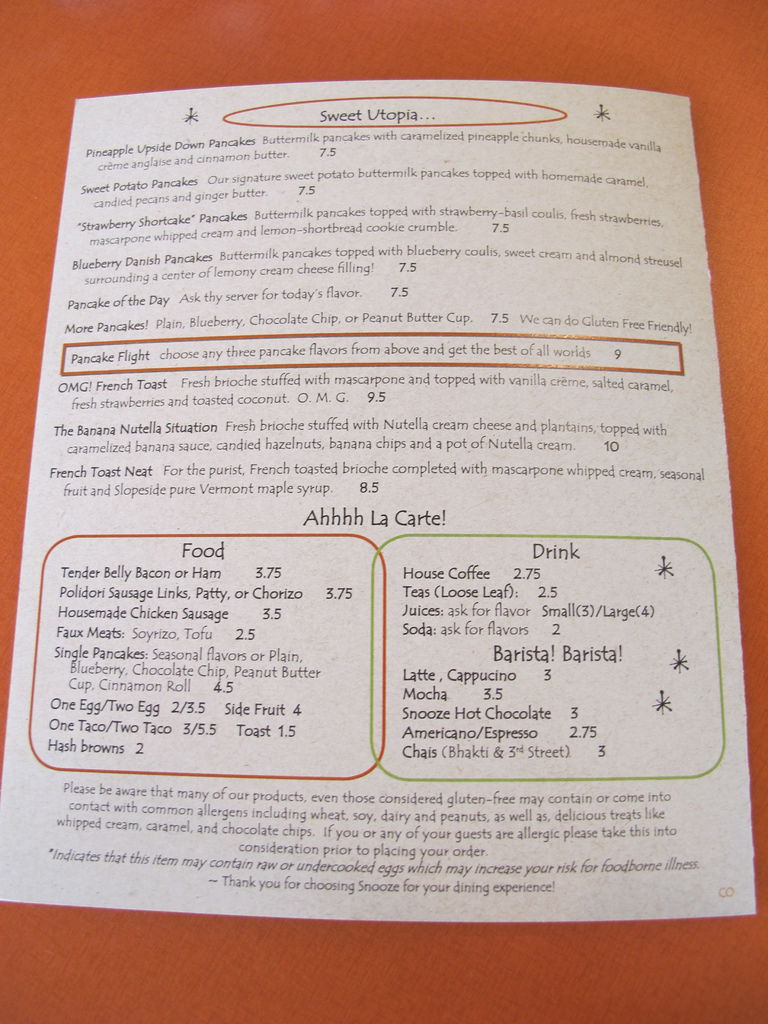 Sweet Utopia...
Pineapple Upside Down Pancakes Buttermilk pancakes with caramelized pineapple chunks, housemade vanilla
crème anglaise and cinnamon butter. 7.5
Sweet Potato Pancakes Our signature sweet potato buttermilk pancakes topped with homemade caramel,
candied pecans and ginger butter. 7.5
"Strawberry Shortcake" Pancakes Buttermilk pancakes topped with strawberry-basil coulis, fresh strawberries,
mascarpone whipped cream and lemon-shortbread cookie crumble. 7.5
Blueberry Danish Pancakes Buttermilk pancakes topped with blueberry coulis, sweet cream and almond streusel
surrounding a center of lemony cream cheese filling! 7.5
Pancake of the Day Ask thy server for today's flavor. 7.5
More Pancakes! Plain, Blueberry, Chocolate Chip, or Peanut Butter Cup. 7.5 We can do Gluten Free Friendly!
Pancake Flight choose any three pancake flavors from above and get the best of all worlds 9
OMG! French Toast Fresh brioche stuffed with mascarpone and topped with vanilla crème, salted caramel,
fresh strawberries and toasted coconut. O. M. G. 9.5
The Banana Nutella Situation Fresh brioche stuffed with Nutella cream cheese and plantains, topped with
caramelized banana sauce, candied hazelnuts, banana chips and a pot of Nutella cream. 10
French Toast Neat For the purist, French toasted brioche completed with mascarpone whipped cream, seasonal
fruit and Slopeside pure Vermont maple syrup. 8.5
Ahhhh La Carte!
Food
Tender Belly Bacon or Ham 3.75
Polidori Sausage Links, Patty, or Chorizo 3.75
Housemade Chicken Sausage 3.5
Faux Meats: Soyrizo, Tofu 2.5
Single Pancakes: Seasonal flavors or Plain,
Blueberry, Chocolate Chip, Peanut Butter
Cup, Cinnamon Roll 4.5
One Egg/Two Egg 2/3.5 Side Fruit 4
One Taco/Two Taco 3/5.5 Toast 1.5
Hash browns 2
Drink
House Coffee 2.75
Teas (Loose Leaf): 2.5
Juices: ask for flavor Small(3)/Large(4)
Soda: ask for flavors 2
Barista! Barista!
Latte , Cappucino 3
Mocha 3.5
Snooze Hot Chocolate 3
Americano/Espresso 2.75
Chais (Bhakti & 3rd Street) 3
Please be aware that many of our products, even those considered gluten-free may contain or come into
contact with common allergens including wheat, soy, dairy and peanuts, as well as, delicious treats like
whipped cream, caramel, and chocolate chips. If you or any of your guests are allergic please take this into
consideration prior to placing your order.
*Indicates that this item may contain raw or undercooked eggs which may increase your risk for foodborne illness.
~ Thank you for choosing Snooze for your dining experience!
CO